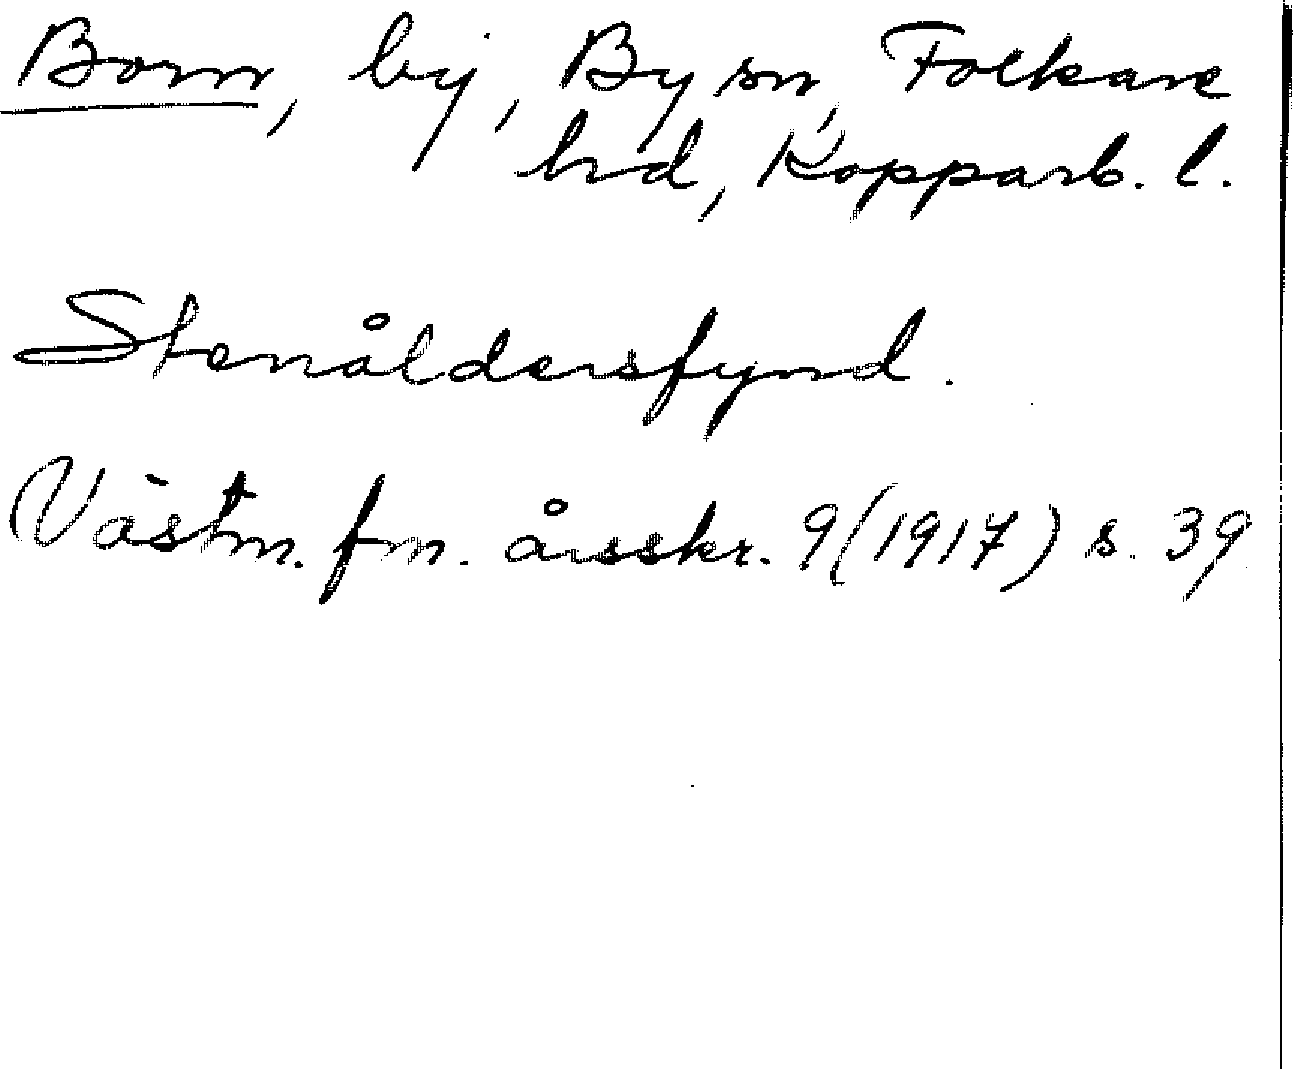 Born, by, By sn, Folkare
hd, Kopparb. l.
Stenåldersfynd.
Västm. fm. årsskr. 9 (1917) s. 39